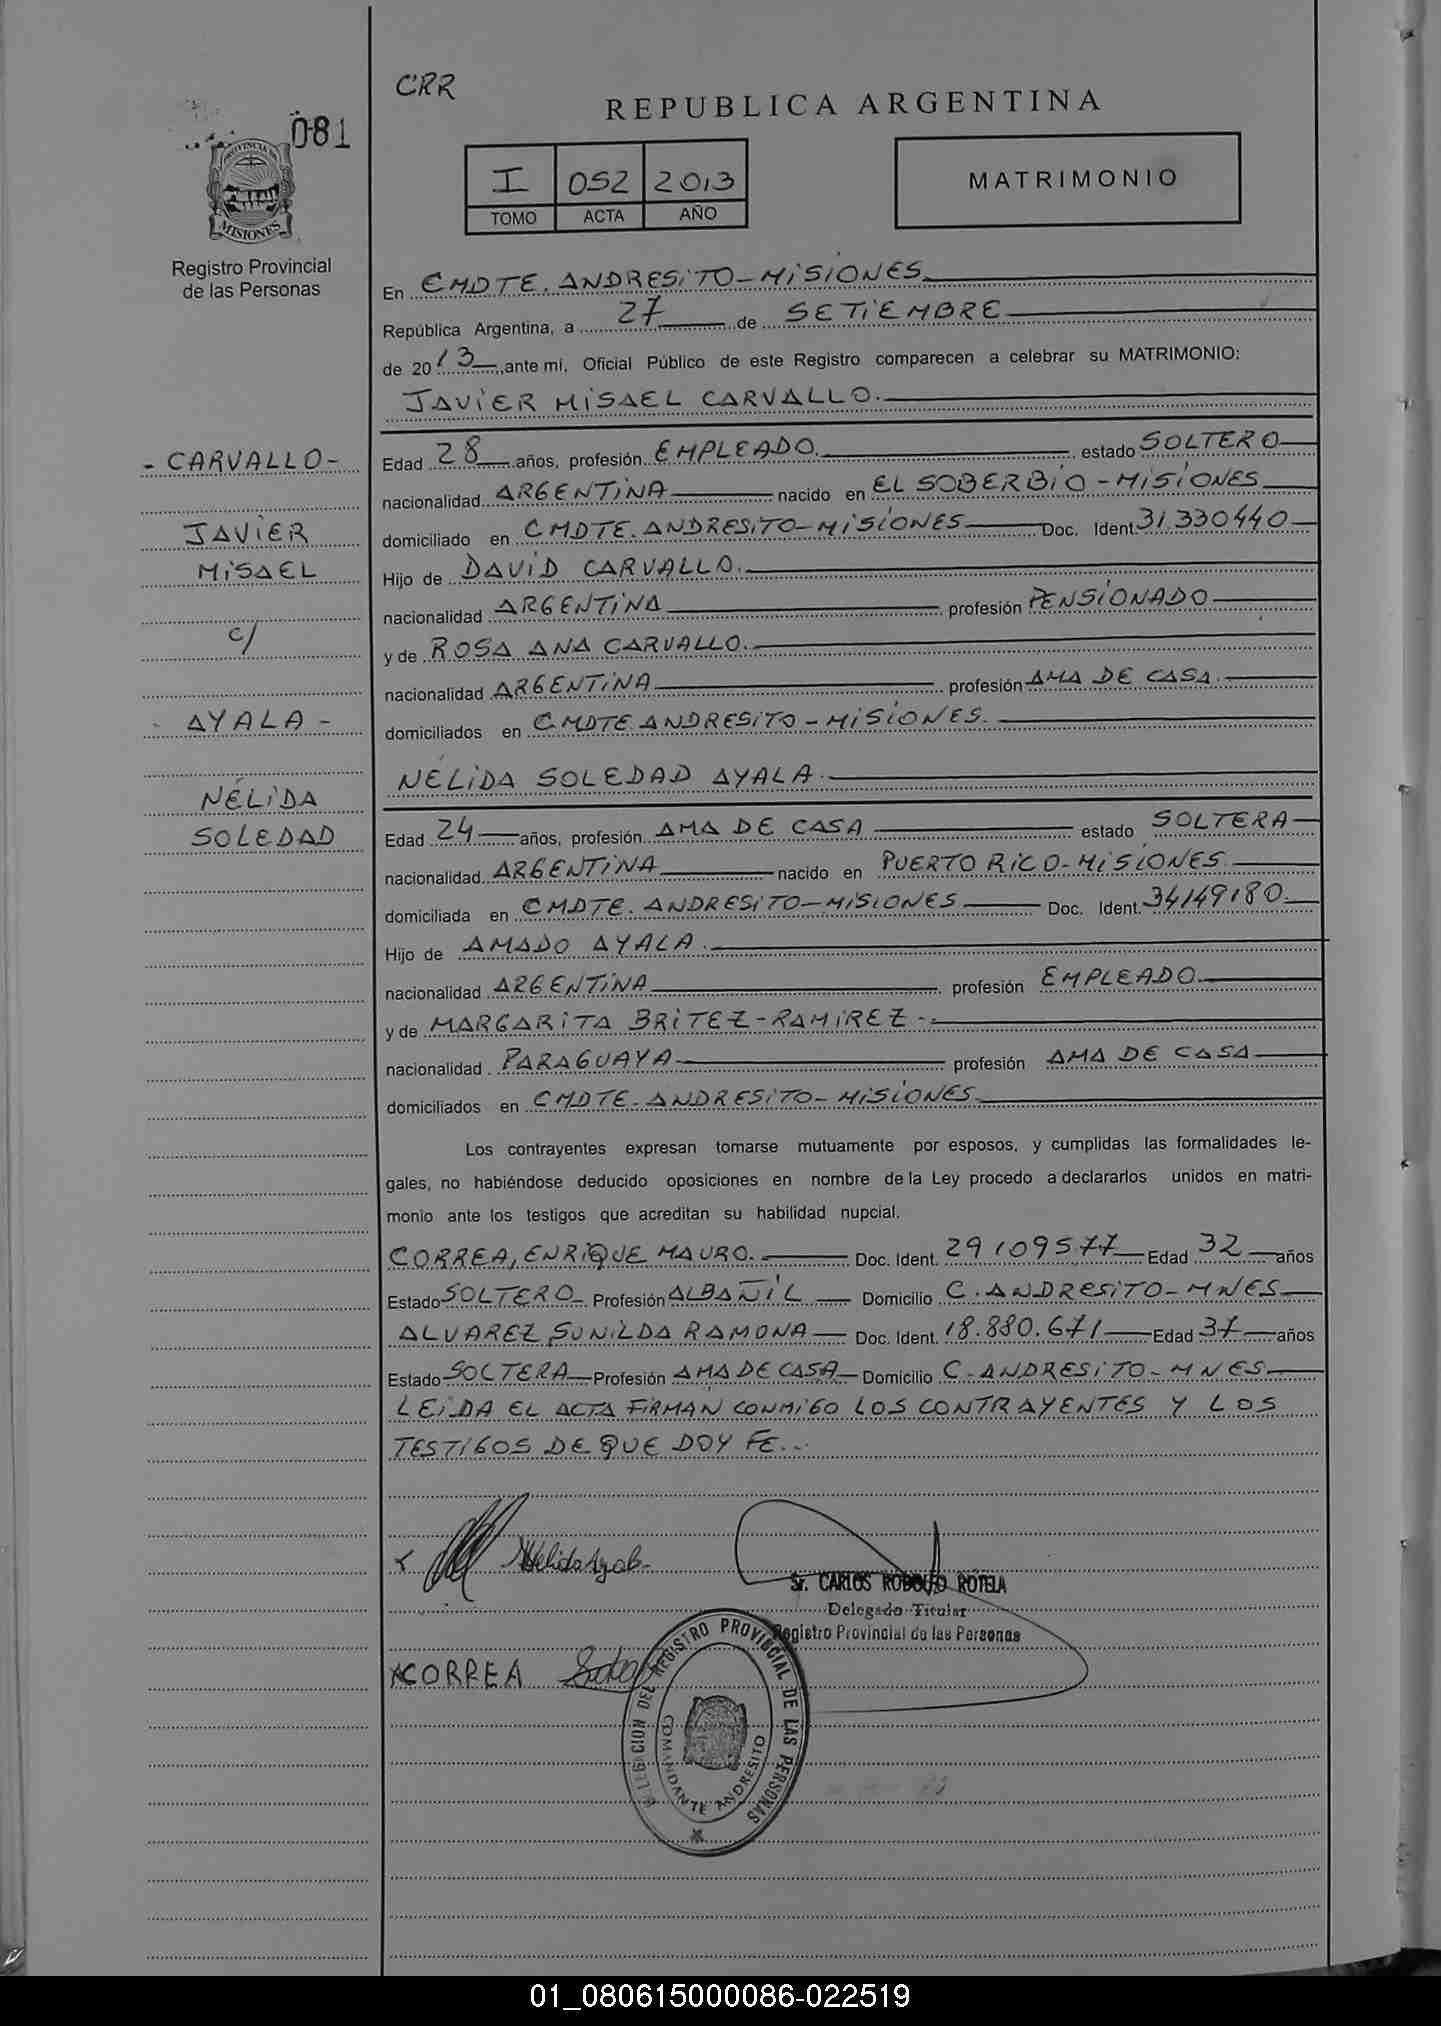 CRR
REPUBLICA ARGENTINA
081
I 052 2013
TOMO ACTA AÑO
MATRIMONIO
PROVINCIA DE
MISIONES
Registro Provincial
de las Personas
En CMDTE. ANDRESiTO-MiSiONES
República Argentina, a 27 de SETiEMBRE
de 2013 ante mi, Oficial Público de este Registro comparecen a celebrar su MATRIMONIO:
JAViER MiSAEL CARVALLO.
- CARVALLO -
JAViER
MiSAEL
c/
- AYALA -
NÉLiDA
SOLEDAD
Edad 28 años, profesión EMPLEADO. estado SOLTERO
nacionalidad ARGENTiNA nacido en EL SOBERBiO - MiSiONES
domiciliado en CMDTE. ANDRESiTO-MiSiONES Doc. Ident. 31.330440
Hijo de DAViD CARVALLO.
nacionalidad ARGENTiNA profesión PENSiONADO
y de ROSA ANA CARVALLO.
nacionalidad ARGENTiNA profesión AMA DE CASA.
domiciliados en CMDTE ANDRESiTO - MiSiONES.
NÉLiDA SOLEDAD AYALA.
Edad 24 años, profesión AMA DE CASA estado SOLTERA
nacionalidad ARGENTiNA nacido en PUERTO RiCO-MiSiONES.
domiciliada en CMDTE. ANDRESiTO-MiSiONES Doc. Ident. 34149180
Hijo de AMADO AYALA.
nacionalidad ARGENTiNA profesión EMPLEADO
y de MARGARiTA BRiTEZ-RAMiREZ-.
nacionalidad PARAGUAYA profesión AMA DE CASA
domiciliados en CMDTE. ANDRESiTO-MiSiONES.
Los contrayentes expresan tomarse mutuamente por esposos, y cumplidas las formalidades le-
gales, no habiéndose deducido oposiciones en nombre de la Ley procedo a declararlos unidos en matri-
monio ante los testigos que acreditan su habilidad nupcial.
CORREA, ENRiQUE MAURO. Doc. Ident. 29109577 Edad 32 años
Estado SOLTERO Profesión ALBAÑiL Domicilio C. ANDRESiTO-MNES
ALVAREZ, SUNiLDA RAMONA Doc. Ident. 18.880.671 Edad 37 años
Estado SOLTERA Profesión AMA DE CASA Domicilio C. ANDRESiTO-MNES
LEiDA EL ACTA FiRMAN CONMiGO LOS CONTRAYENTES Y LOS
TESTiGOS DE QUE DOY FE..-
Nelida Ayala
Sr. CARLOS RODOLFO ROTELA
Delegado Titular
Registro Provincial de las Personas
CORREA
DELEGACION DEL REGISTRO PROVINCIAL DE LAS PERSONAS
COMANDANTE ANDRESITO
01_080615000086-022519